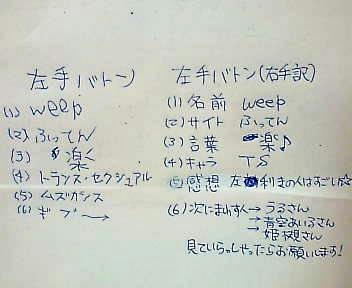 左手バトン
(1) weep
(2) ふってん
(3) 楽く
(4) トランス・セクシュアル
(5) ムズガシス
(6) ギブ→
左手バトン(右手訳)
(1) 名前 weep
(2) サイト ふってん
(3) 言葉 楽♪
(4) キャラ TS
(5) 感想 左利きの人はすごい☆
(6) 次にまわす人→うるさん
→青空あいるさん
→姫さん
見ていらっしゃったらお願いします!